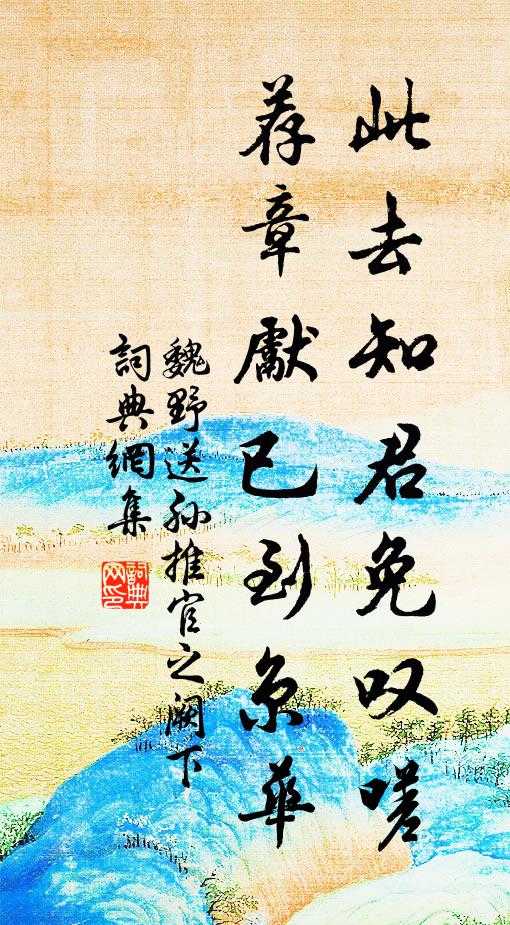 此去知君免叹嗟
荐章獻已到京華
魏野送孙推官之闕下
詞典網集
詞典網印